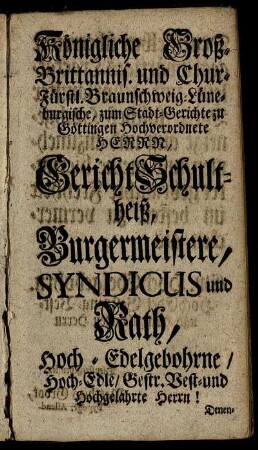 Königliche Groß-
Brittannis. und Chur-
Fürstl. Braunschweig-Lüne-
burgische, zum Stadt-Gerichte zu
Göttingen Hochverordnete
HERRN,
Gericht Schult-
heiß,
Burgermeistere,
SYNDICUS und
Rath,
Hoch-Edelgebohrne /
Hoch-Edle / Gestr. Vest- und
Hochgelährte Herrn!
Denen-